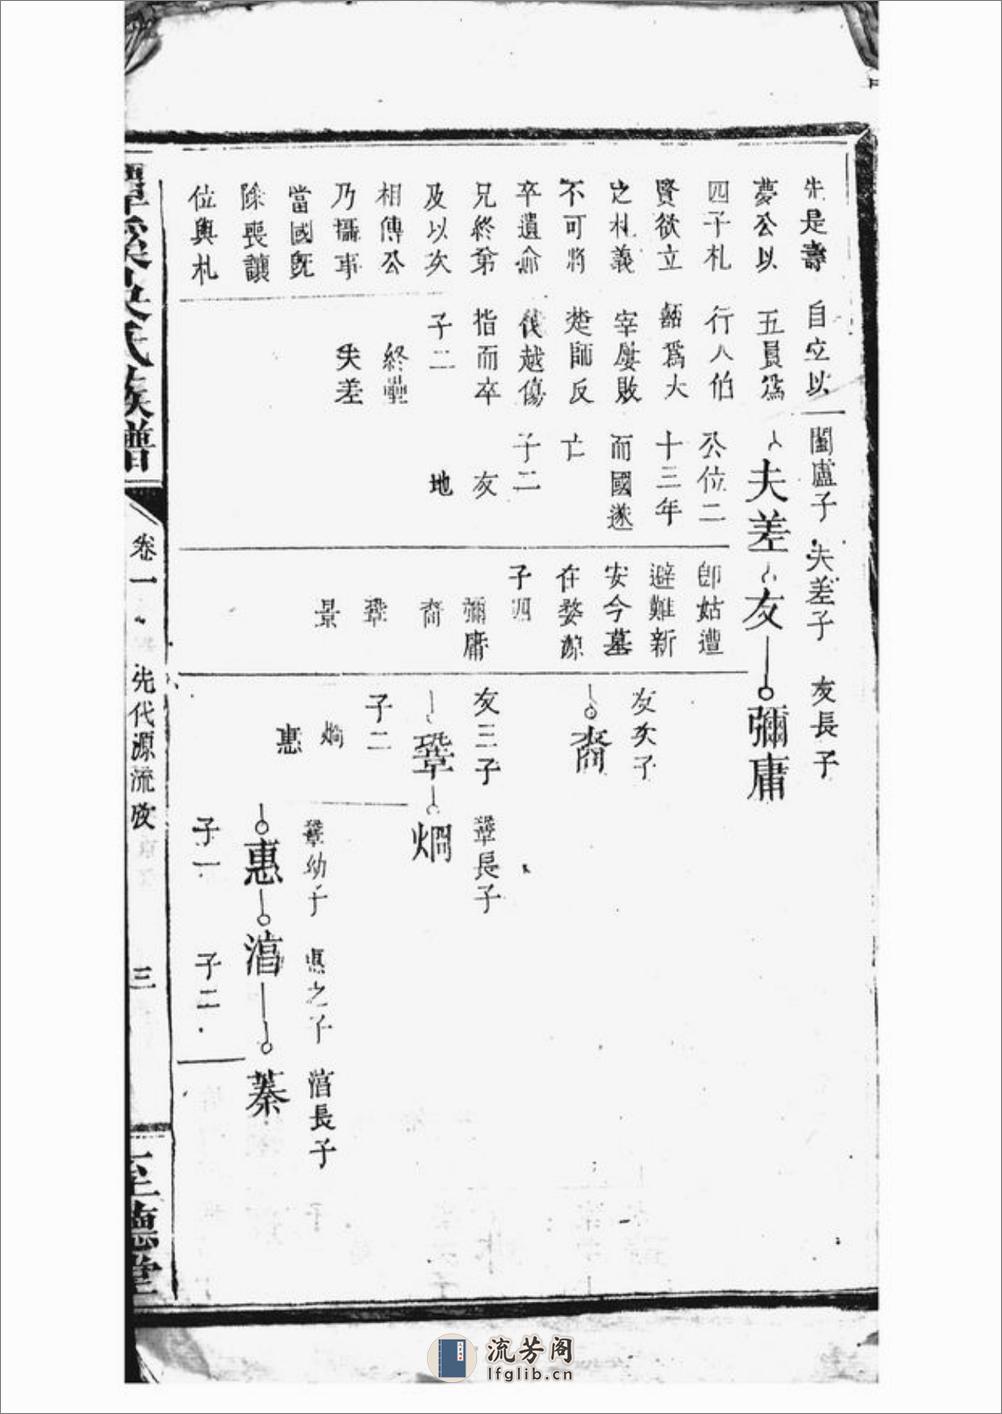 先是壽
夢公以
四子札
賢欲立
之札義
不可將
卒遺命
兄終第
及以次
相傳公
乃攝事
當國既
除喪讓
位與札
自立以
五員為
行人伯
嚭為大
宰屢敗
楚師反
伐越傷
指而卒
子二
終壘
夫差
闔廬子
夫差
公位二
十三年
而國遂
亡
子二
友
地
夫差子
友
即姑遭
避難新
安今墓
在婺源
子四
彌庸
裔
鞏
景
友長子
彌庸
友次子
裔
友三子
鞏
子二
烱
惠
鞏長子
烱
鞏幼子
惠
子一
惠之子
湻
子二
湻長子
蓁
潭溪吳氏族譜
卷一
先代源流攷
三
至德堂
流芳阁
lfglib.cn